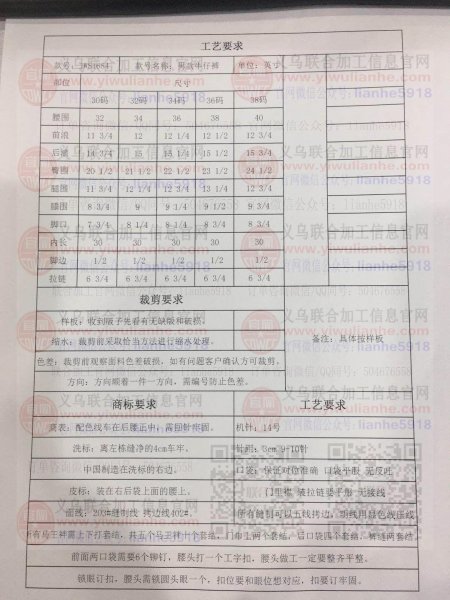 工艺要求
款号: 款号名称: 男款牛仔裤 单位: 英寸
部位 尺寸
30码 32码 34码 36码 38码
腰围 32 34 36 38 40
前浪 11 3/4 12 12 1/4 12 1/2 12 3/4
后浪 14 3/4 15 15 1/4 15 1/2 15 3/4
臀围 20 1/2 21 1/2 22 1/2 23 1/2 24 1/2
腿围 11 3/4 12 1/4 12 3/4 13 1/4 12 3/4
膝围 8 3/4 9 9 1/2 9 3/4
脚口 7 3/4 8 1/4 8 3/4
内长 30 30 30 30 30
脚边 1/2 1/2 1/2 1/2 1/2
拉链 6 3/4 6 3/4 6 3/4 6 3/4 6 3/4
裁剪要求
样板: 收到版子先看有无缺版和破损。
缩水: 裁剪前采取恰当方法进行缩水处理。
备注: 具体按样板
色差: 裁剪前观察面料色差破损, 如有问题客户确认方可裁剪。
方向: 方向顺着一件一方向, 需编号防止色差。
商标要求 工艺要求
配色线车在后腰正中, 需回针牢固。 机针: 14号
洗标: 离左栋缝净的4cm车牢。 针距: 3cm 9-10针
中国制造在洗标的右边。 口袋: 保证对位准确 口袋平服 无反吐
皮标: 装在右后袋上面的腰上。 门里襟 装拉链要平服 无接线
面线: 203#缝制线 拷边线402#。
前面两口袋需要6个铆钉, 腰头打一个工字扣, 腰头做工一定要整齐平整。
锁眼订扣, 腰头需锁圆头眼一个, 扣位要和眼位想对应, 扣要订牢固。
义乌联合加工信息官网
www.yiwulianhe.com
官网微信公众号: lianhe5918